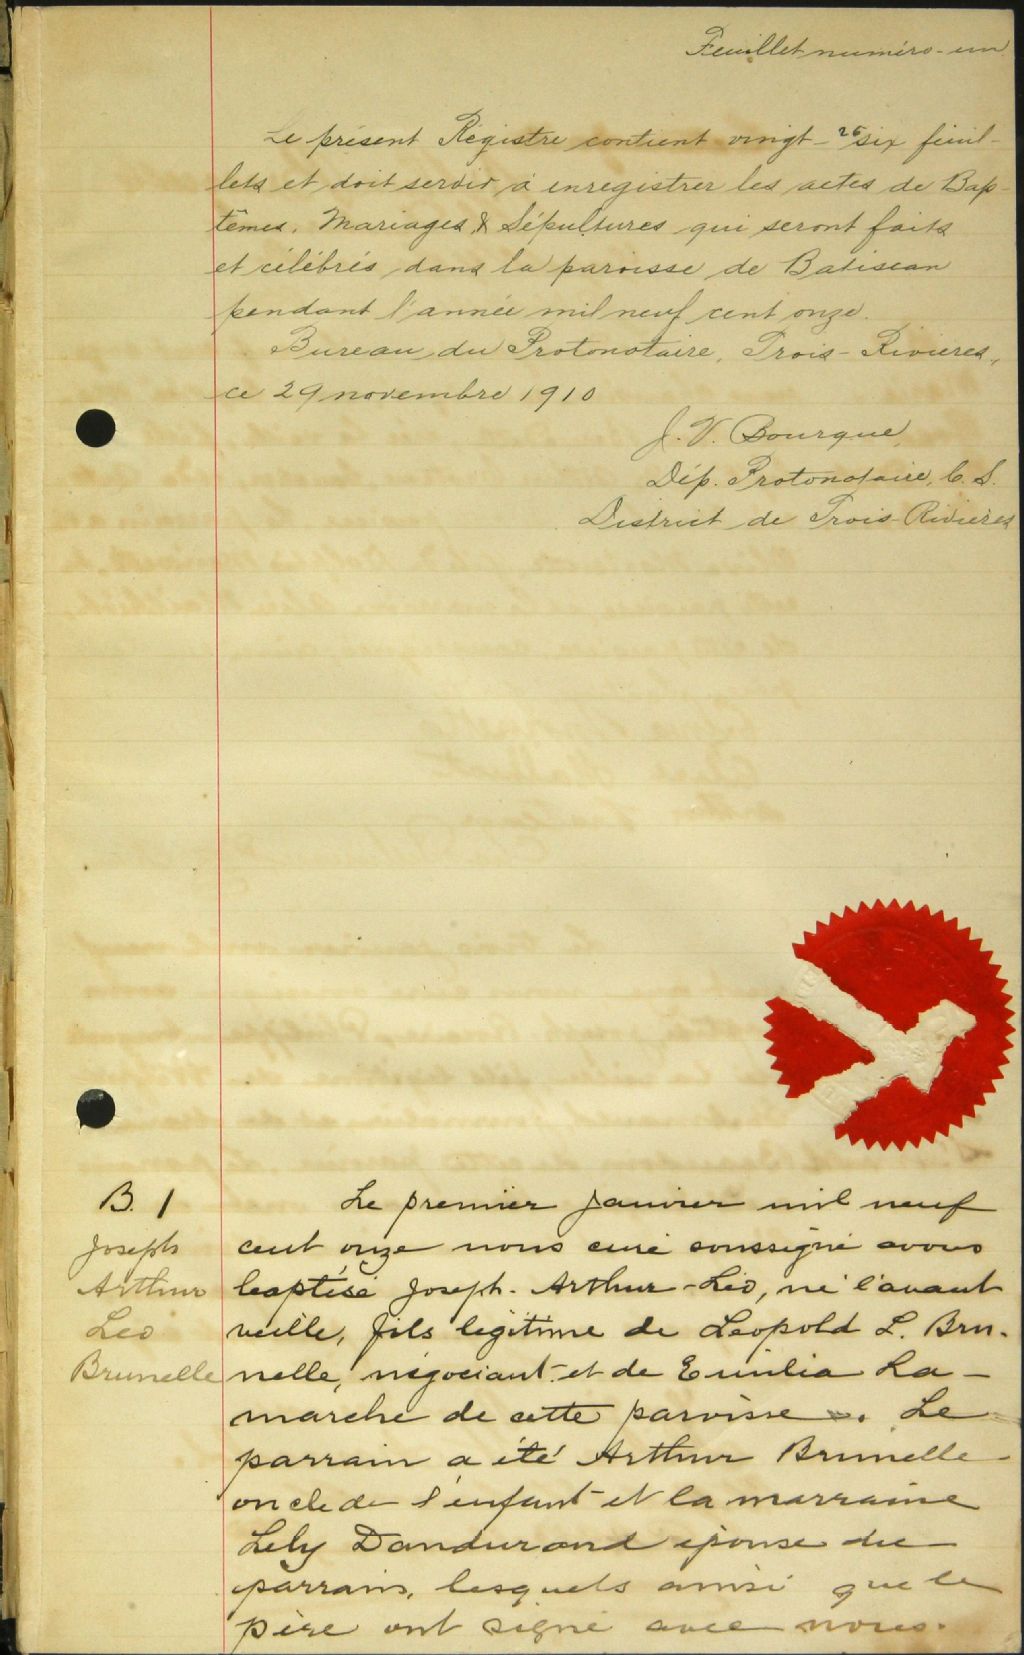 Feuillet numéro - un
Le présent Régistre contient vingt - 26 six feuil-
lets et doit servir à enregistrer les actes de Bap-
têmes, Mariages & Sépultures qui seront faits
et célébrés dans la paroisse de Batiscan
pendant l'année mil neuf cent onze.
Bureau du Protonotaire, Trois - Rivières,
ce 29 novembre 1910
J. V. Bourque,
Dép. Protonotaire, C. S.
District de Trois-Rivières
B. 1
Joseph
Arthur
Leo
Brunelle
Le premier janvier mil neuf
cent onze nous curé soussigné avons
baptisé Joseph - Arthur - Léo, né l'avant
veille, fils légitime de Leopold L. Bru-
nelle, négociant et de Emilia La -
marche de cette paroisse. Le
parrain a été Arthur Brunelle
oncle de l'enfant et la marraine
Lely Dandurand épouse du
parrain, lesquels ainsi que le
père ont signé avec nous.